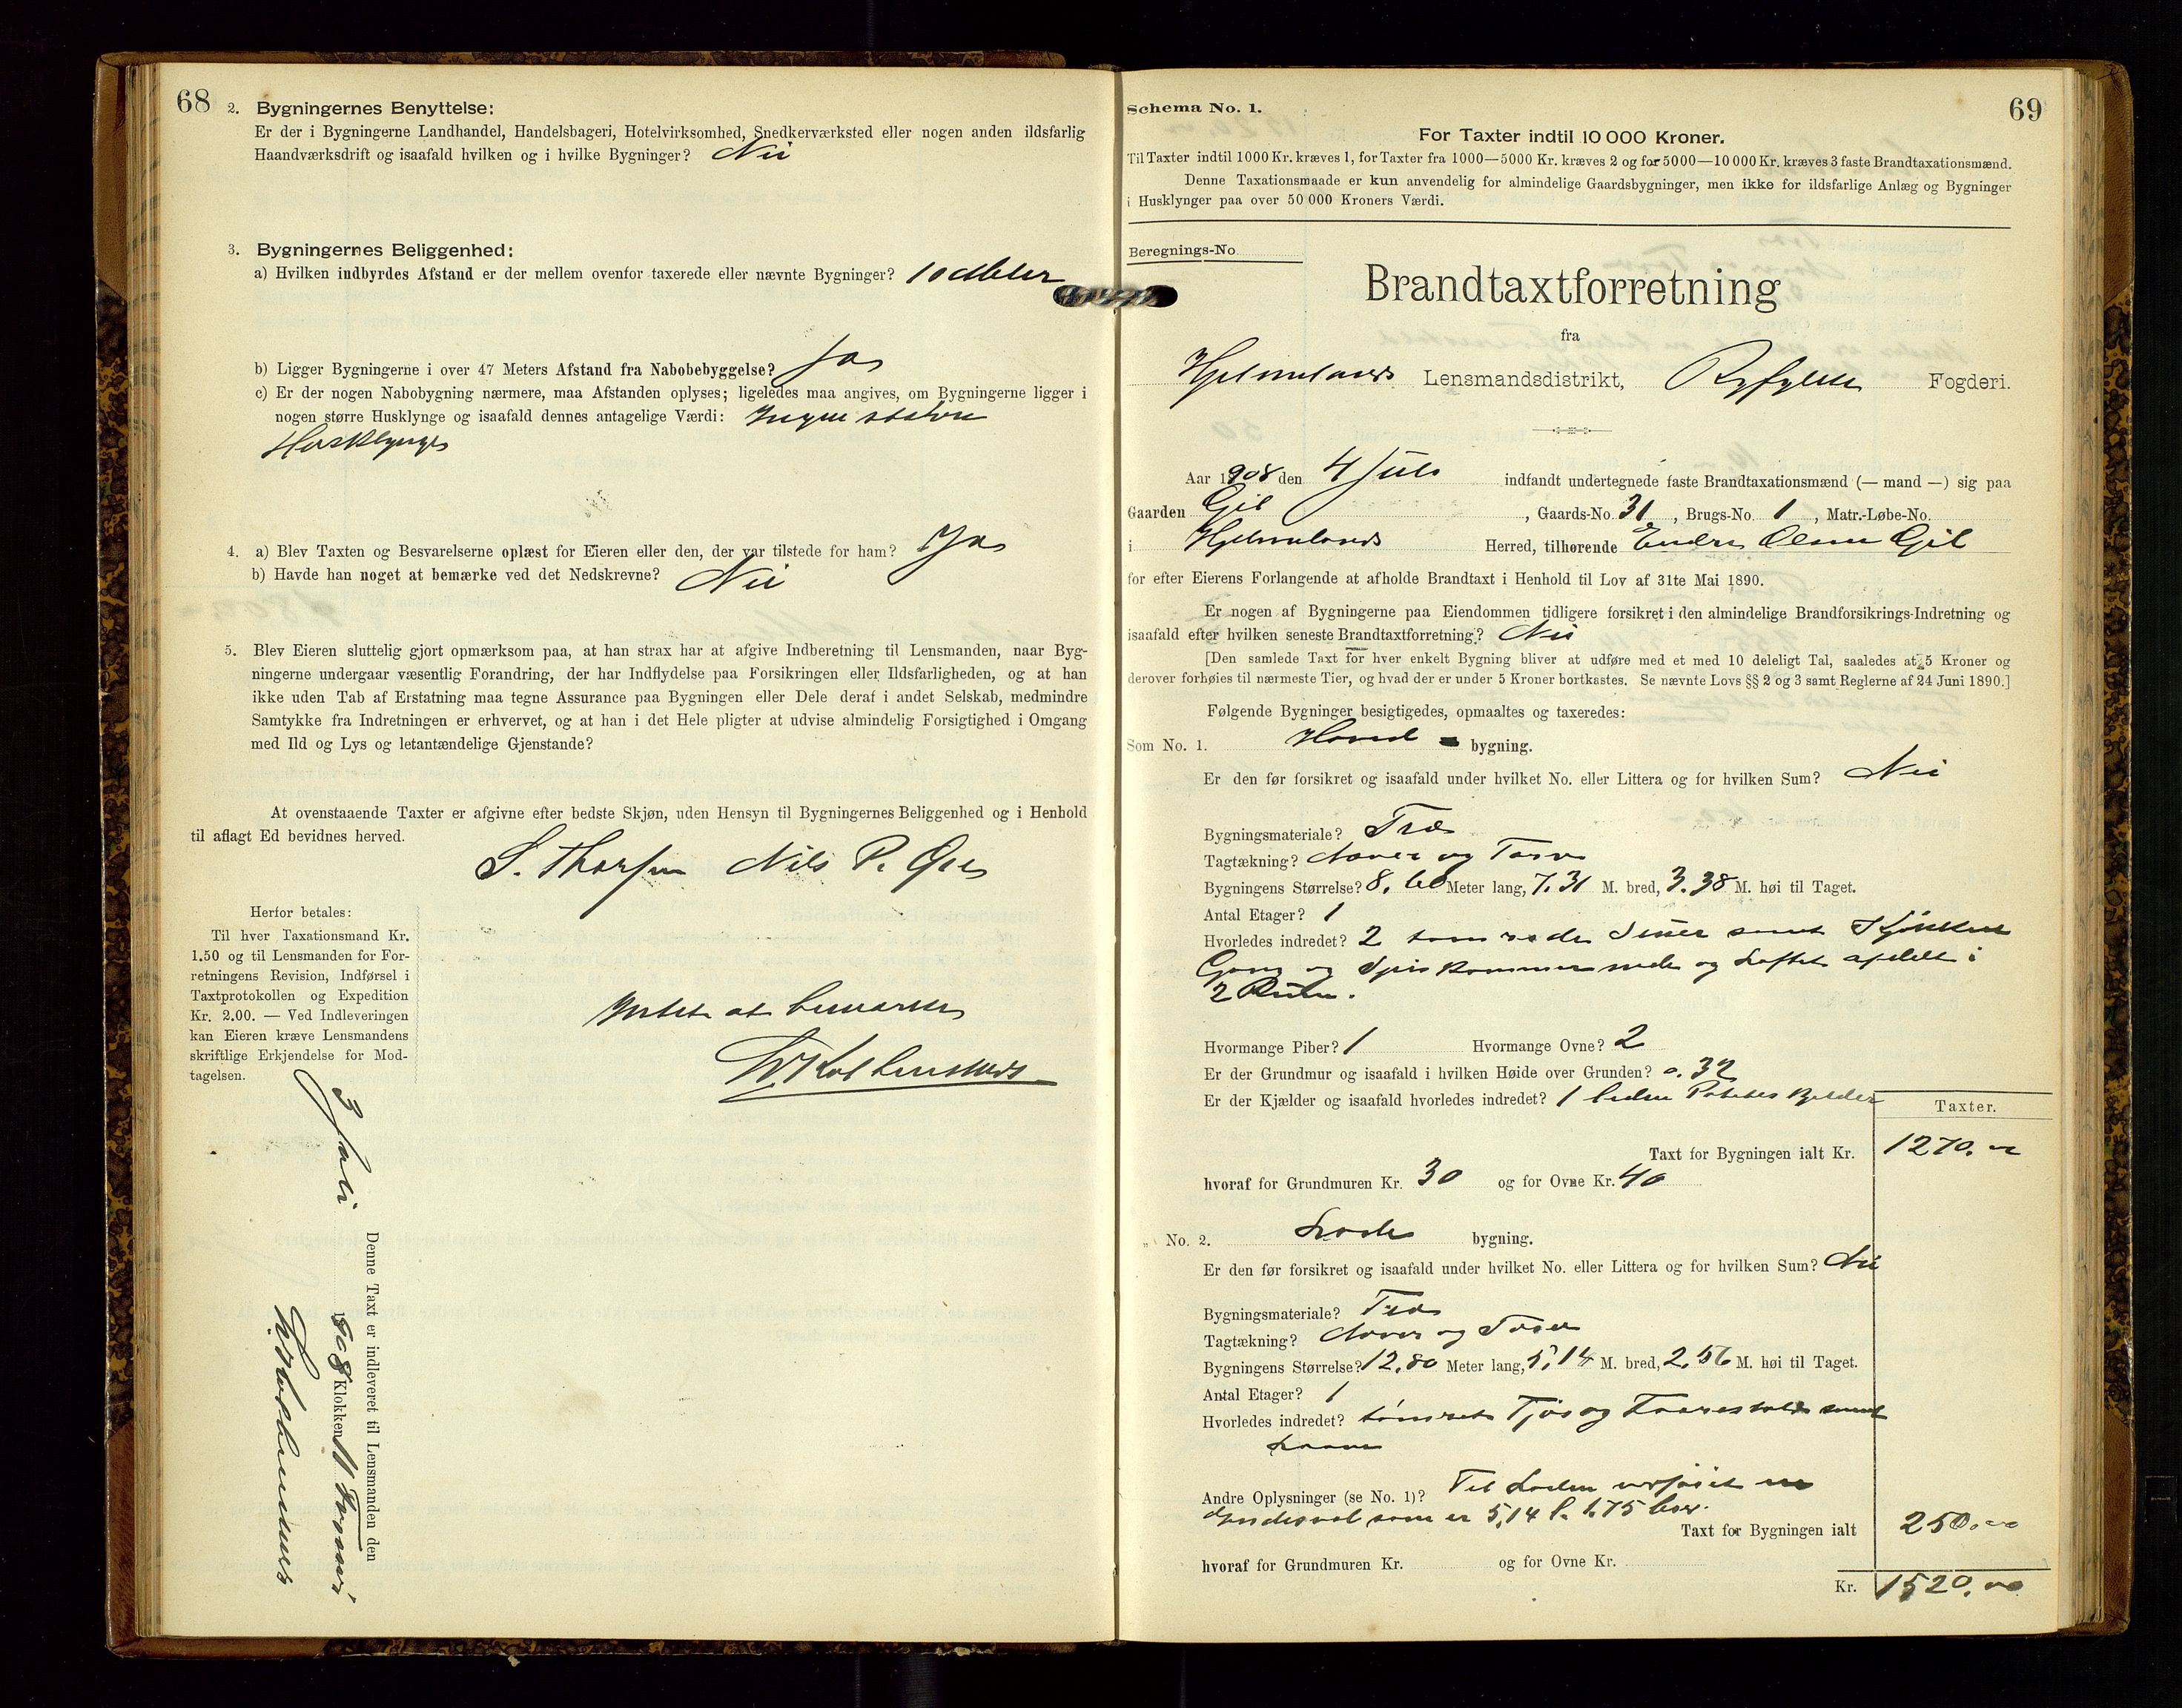 68
2. Bygningernes Benyttelse:
Er der i Bygningerne Landhandel, Handelsbageri, Hotelvirksomhed, Snedkerværksted eller nogen anden ildsfarlig
Haandværksdrift og isaafald hvilken og i hvilke Bygninger? Nei
3. Bygningernes Beliggenhed:
a) Hvilken indbyrdes Afstand er der mellem ovenfor taxerede eller nævnte Bygninger? 10 Meter
b) Ligger Bygningerne i over 47 Meters Afstand fra Nabobebyggelse? Ja
c) Er der nogen Nabobygning nærmere, maa Afstanden oplyses; ligeledes maa angives, om Bygningerne ligger i
nogen større Husklynge og isaafald dennes antagelige Værdi: Ingen større
Husklynge
4. a) Blev Taxten og Besvarelserne oplæst for Eieren eller den, der var tilstede for ham? Ja
b) Havde han noget at bemærke ved det Nedskrevne? Nei
5. Blev Eieren sluttelig gjort opmærksom paa, at han strax har at afgive Indberetning til Lensmanden, naar Byg-
ningerne undergaar væsentlig Forandring, der har Indflydelse paa Forsikringen eller Ildsfarligheden, og at han
ikke uden Tab af Erstatning maa tegne Assurance paa Bygningen eller Dele deraf i andet Selskab, medmindre
Samtykke fra Indretningen er erhvervet, og at han i det Hele pligter at udvise almindelig Forsigtighed i Omgang
med Ild og Lys og letantændelige Gjenstande?
At ovenstaaende Taxter er afgivne efter bedste Skjøn, uden Hensyn til Bygningernes Beliggenhed og i Henhold
til aflagt Ed bevidnes herved.
S. Thorsen Nils P.
Herfor betales:
Til hver Taxationsmand Kr.
1.50 og til Lensmanden for For-
retningens Revision, Indførsel i
Taxtprotokollen og Expedition
Kr. 2.00. — Ved Indleveringen
kan Eieren kræve Lensmandens
skriftlige Erkjendelse for Mod-
tagelsen.
Intet at bemærke
Denne Taxt er indleveret til Lensmanden den
3 Juli 1908 Klokken 11 Formi
69
Schema No. 1.
For Taxter indtil 10 000 Kroner.
Til Taxter indtil 1000 Kr. kræves 1, for Taxter fra 1000—5000 Kr. kræves 2 og for 5000—10 000 Kr. kræves 3 faste Brandtaxationsmænd.
Denne Taxationsmaade er kun anvendelig for almindelige Gaardsbygninger, men ikke for ildsfarlige Anlæg og Bygninger
i Husklynger paa over 50 000 Kroners Værdi.
Beregnings-No.
Brandtaxtforretning
fra
Hjelmelands Lensmandsdistrikt, Ryfylke Fogderi.
Aar 1908 den 4 Juli indfandt undertegnede faste Brandtaxationsmænd (— mand —) sig paa
Gaarden Gil, Gaards-No. 31, Brugs-No. 1, Matr.-Løbe-No.
i Hjelmelands Herred, tilhørende Endre Olsen Gil
for efter Eierens Forlangende at afholde Brandtaxt i Henhold til Lov af 31te Mai 1890.
Er nogen af Bygningerne paa Eiendommen tidligere forsikret i den almindelige Brandforsikrings-Indretning og
isaafald efter hvilken seneste Brandtaxtforretning? Nei
[Den samlede Taxt for hver enkelt Bygning bliver at udføre med et med 10 deleligt Tal, saaledes at 5 Kroner og
derover forhøies til nærmeste Tier, og hvad der er under 5 Kroner bortkastes. Se nævnte Lovs §§ 2 og 3 samt Reglerne af 24 Juni 1890.]
Følgende Bygninger besigtigedes, opmaaltes og taxeredes:
Som No. 1. Hoved - bygning.
Er den før forsikret og isaafald under hvilket No. eller Littera og for hvilken Sum? Nei
Bygningsmateriale? Træ
Tagtækning? Næver og Torv
Bygningens Størrelse? 8,60 Meter lang, 7.31 M. bred, 3.38 M. høi til Taget.
Antal Etager? 1
Hvorledes indredet? 2 tømrede Stuer samt Kjøkken
Gang og Spiskammer nede og Loftet afdelt i
2 Rum.
Hvormange Piber? 1 Hvormange Ovne? 2
Er der Grundmur og isaafald i hvilken Høide over Grunden? 0.32
Er der Kjælder og isaafald hvorledes indredet? 1 liden Potetes Kjelder
Taxter.
Taxt for Bygningen ialt Kr. 1270.00
hvoraf for Grundmuren Kr. 30 og for Ovne Kr. 40
„ No. 2. Lade bygning.
Er den før forsikret og isaafald under hvilket No. eller Littera og for hvilken Sum? Nei
Bygningsmateriale? Træ
Tagtækning? Næver og Torv
Bygningens Størrelse? 12,80 Meter lang, 5,14 M. bred, 2,56 M. høi til Taget.
Antal Etager? 1
Hvorledes indredet? tømret Fjøs og Faarestald samt
Laave
Andre Oplysninger (se No. 1)? Til Laden
som er 5,14 l. 1.75 bred.
Taxt for Bygningen ialt 250.00
hvoraf for Grundmuren Kr. og for Ovne Kr.
Kr. 1520.00